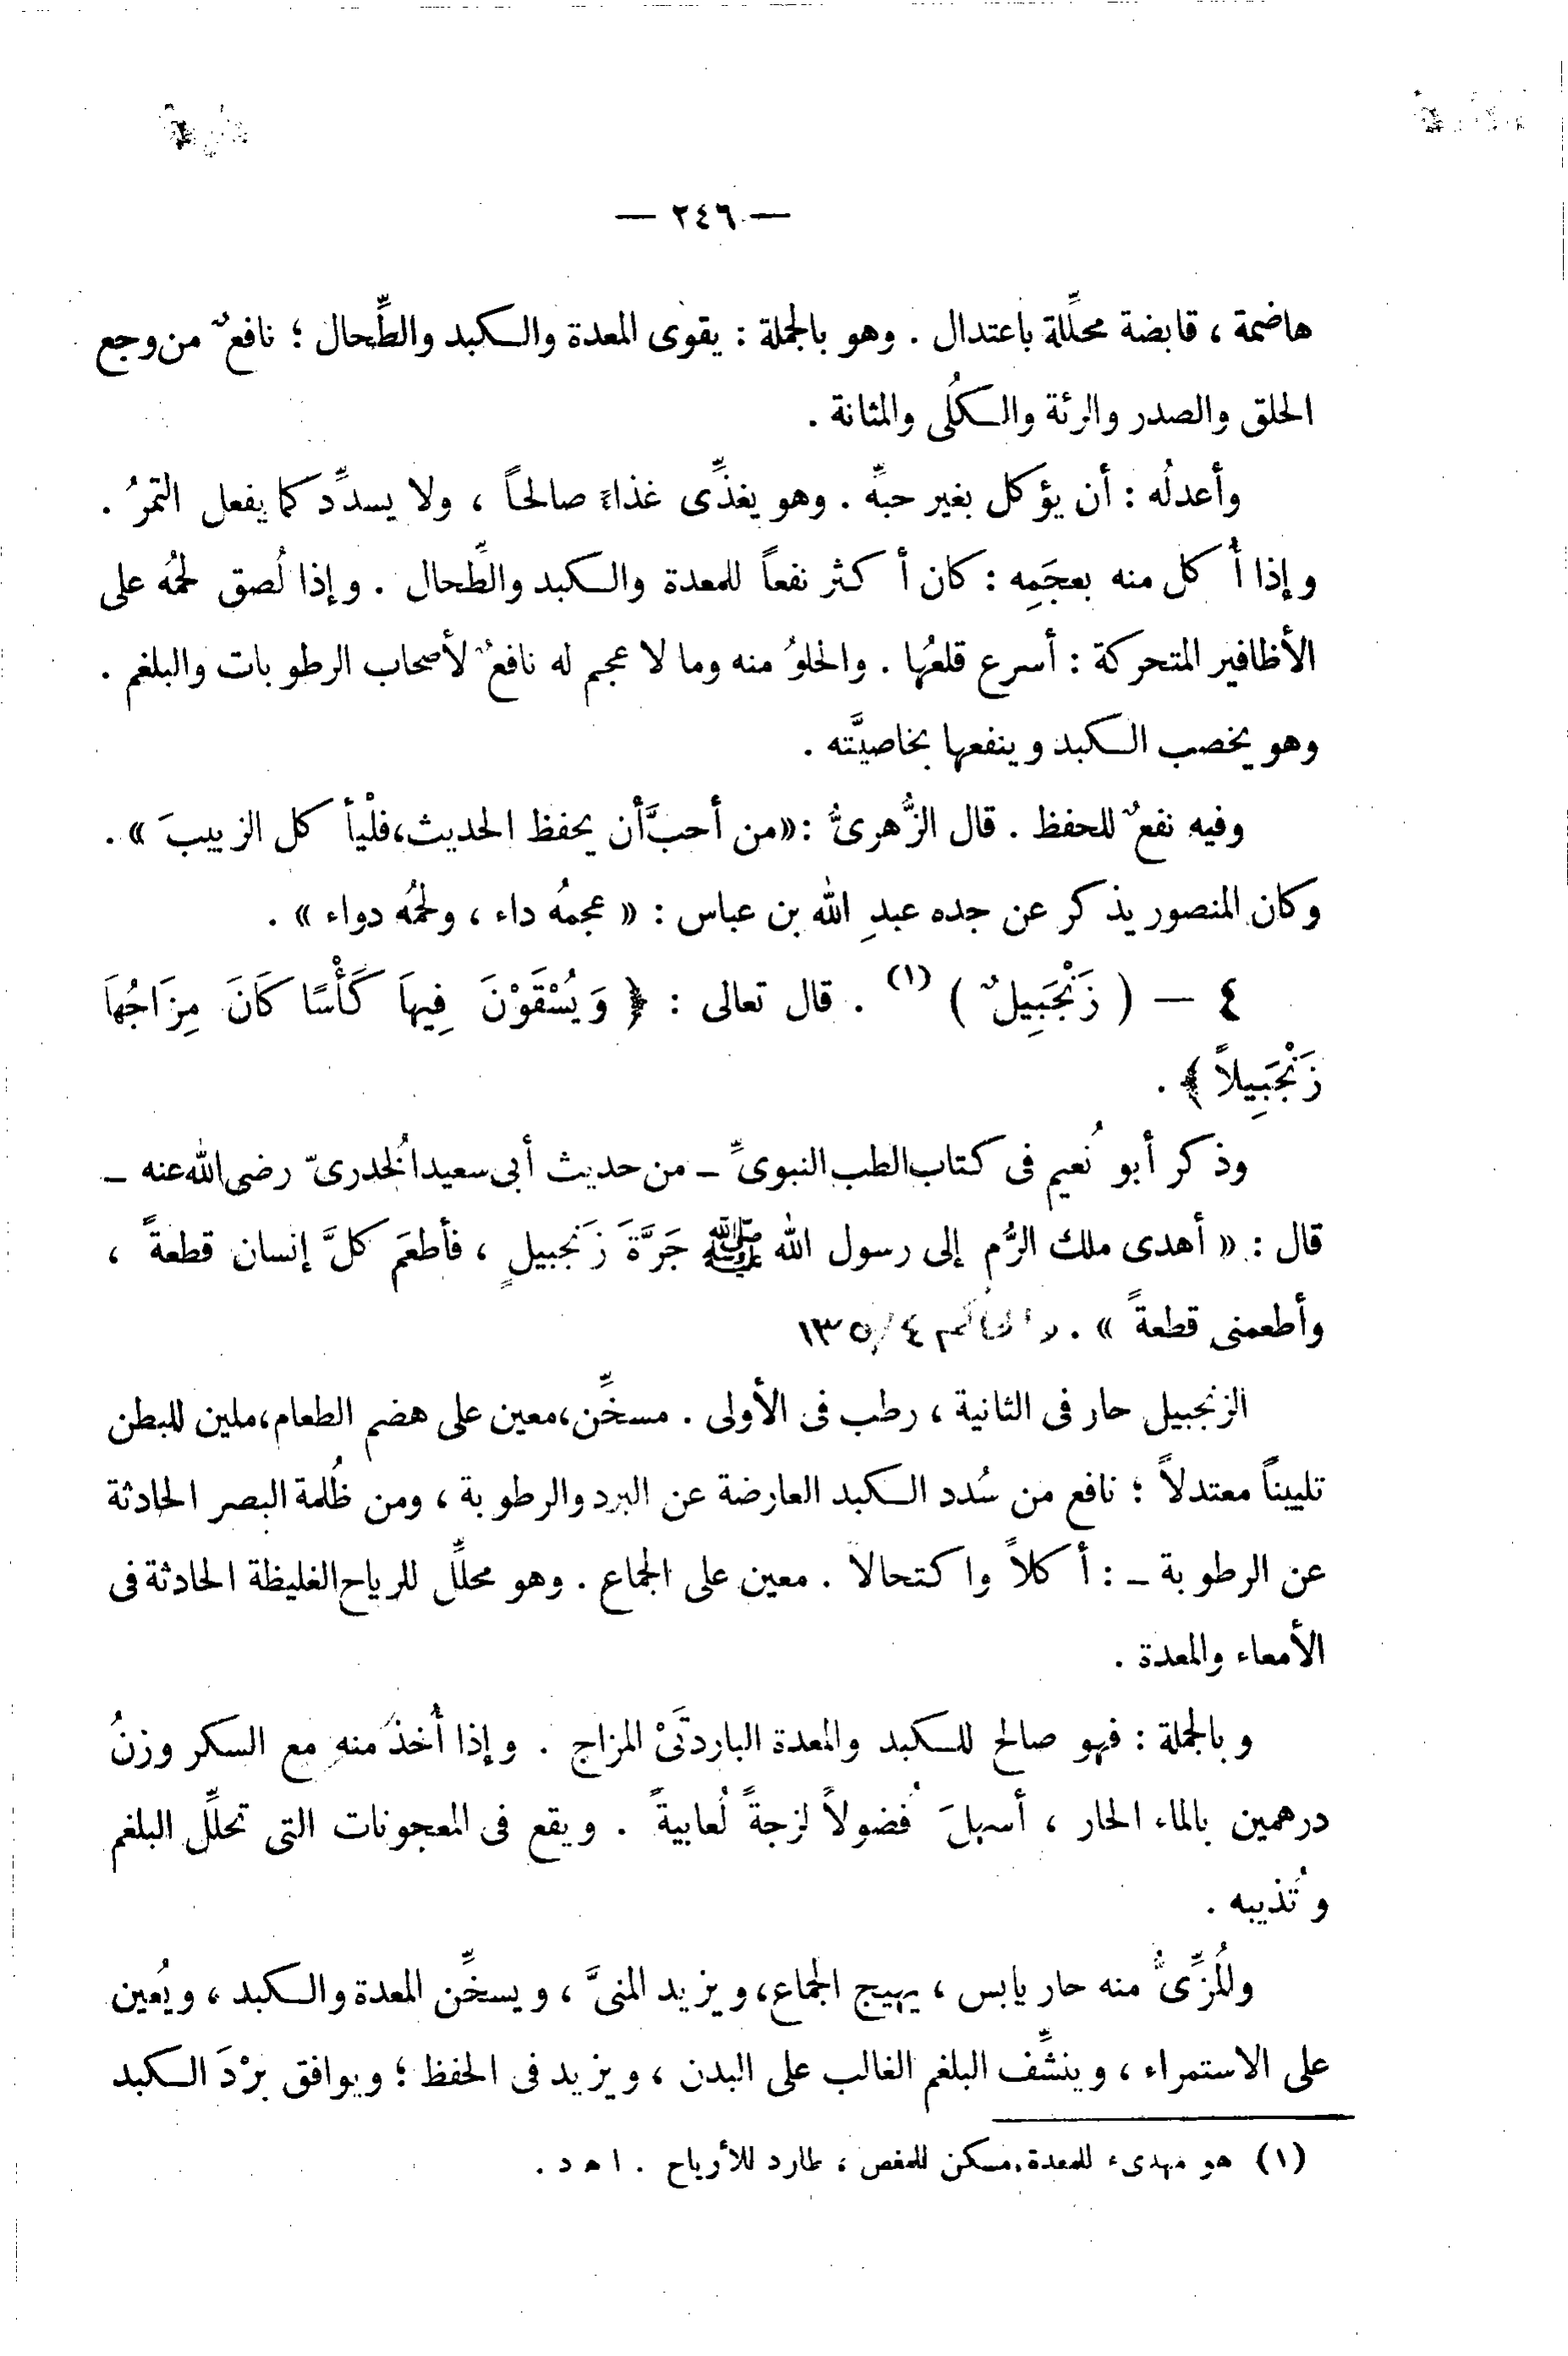 — ٢٤٦ —
هاضمة ، قابضة محلِّلة باعتدال . وهو بالجملة : يقوى المعدة والكبد والطِّحال ؛ نافعٌ من وجع
الحلق والصدر والرئة والكُلى والمثانة .
وأعدلُه : أن يؤكل بغير حبِّه . وهو يغذِّى غذاءً صالحاً ، ولا يسدِّد كما يفعل التمرُ .
وإذا أُكل منه بعجَمِه : كان أكثر نفعاً للمعدة والكبد والطِّحال . وإذا لُصق لحمُه على
الأظافير المتحركة : أسرع قلعُها . والحلوُ منه وما لا عجم له نافعٌ لأصحاب الرطوبات والبلغم .
وهو يخصب الكبد وينفعها بخاصيَّته .
وفيه نفعٌ للحفظ . قال الزُّهرىُّ : «من أحبَّ أن يحفظ الحديث،فلْيأكل الزبيبَ » .
وكان المنصور يذكر عن جده عبدِ الله بن عباس : « عجمُه داء ، ولحمُه دواء » .
٤ — ( زَنْجَبِيلٌ ) (١) . قال تعالى : ﴿ وَيُسْقَوْنَ فِيهَا كَأْسًا كَانَ مِزَاجُهَا
زَنْجَبِيلاً ﴾ .
وذكر أبو نُعيم فى كتاب الطب النبوىِّ ـ من حديث أبى سعيد الُخدرىّ رضى الله عنه ـ
قال : « أهدى ملك الرُّم إلى رسول الله ﷺ جَرَّةَ زَنجبيلٍ ، فأطعَم كلَّ إنسان قطعةً ،
وأطعمنى قطعةً » . ١٣٥/٤
الزنجبيل حار فى الثانية ، رطب فى الأولى . مسخِّن،معين على هضم الطعام،ملين للبطن
تلييناً معتدلاً ؛ نافع من سُدد الكبد العارضة عن البرد والرطوبة ، ومن ظُلمة البصر الحادثة
عن الرطوبة ـ : أكلاً واكتحالاً . معين على الجماع . وهو محلِّل للرياح الغليظة الحادثة فى
الأمعاء والمعدة .
وبالجملة : فهو صالح للكبد والمعدة الباردتَىْ المزاج . وإذا أُخذ منه مع السكر وزنُ
درهمين بالماء الحار ، أسهلَ فُضولاً لزجةً لُعابيةً . ويقع فى المعجونات التى تحلِّل البلغم
وتُذيبه .
والُمزِّىُّ منه حار يابس ، يهيج الجماع،ويزيد المنىَّ ، ويسخِّن المعدة والكبد ، ويُعين
على الاستمراء ، وينشِّف البلغم الغالب على البدن ، ويزيد فى الحفظ ؛ ويوافق بَرْدَ الكبد
(١) هو مهدىء للمعدة،مسكن للمغص ، طارد للأرياح . ا هـ د .